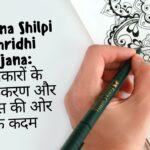 na Shilpi
mridhi
jana:
कारों के
करण और
स की ओर
क कदम